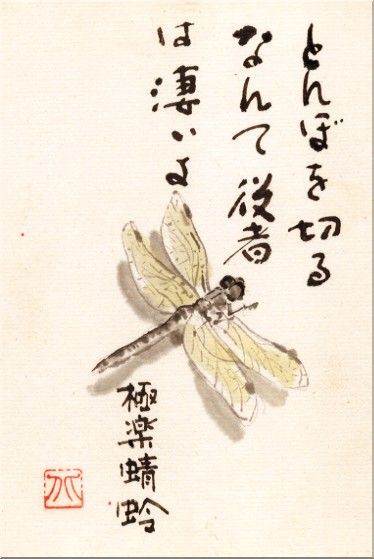 とんぼを切る
なんて役者
は凄いよ
極楽蜻蛉